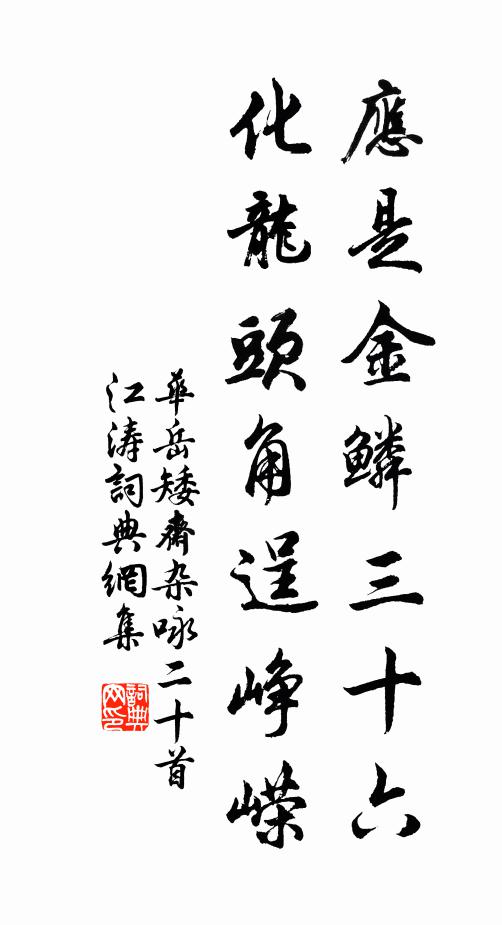 應是金鱗三十六
化龍頭角逞崢嶸
華岳矮齋杂咏二十首
江涛詞典網集
詞典网印